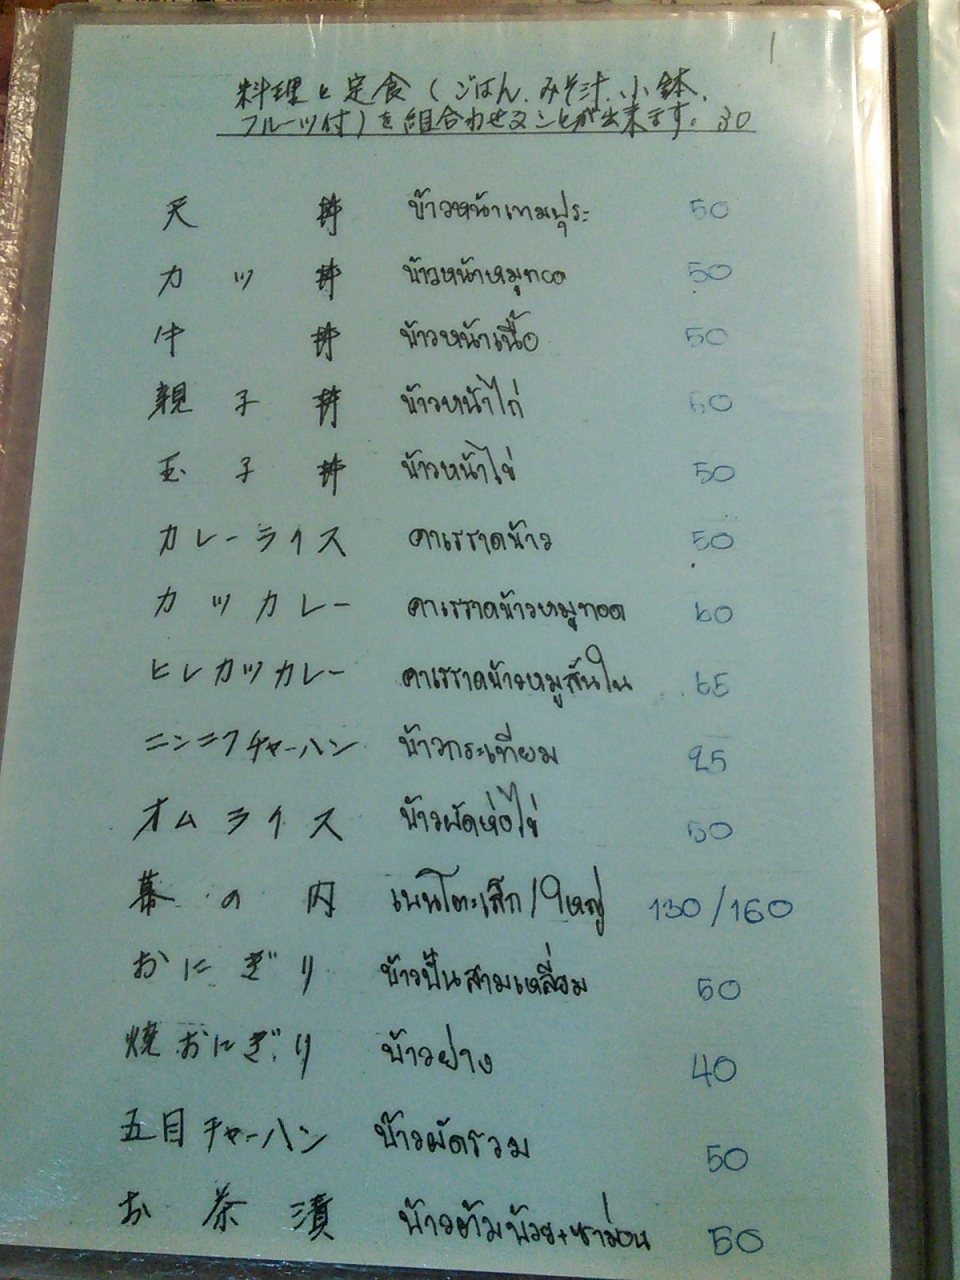 1
料理と定食(ごはん、みそ汁、小鉢、
フルーツ付)を組合わせることが出来ます。30
天丼 ข้าวหน้าเทมปุระ 50
カツ丼 ข้าวหน้าหมูทอด 50
牛丼 ข้าวหน้าเนื้อ 50
親子丼 ข้าวหน้าไก่ 50
玉子丼 ข้าวหน้าไข่ 50
カレーライス คาเรราดข้าว 50
カツカレー คาเรราดข้าวหมูทอด 60
ヒレカツカレー คาเรราดข้าวหมูสันใน 65
ニンニクチャーハン ข้าวกระเทียม 25
オムライス ข้าวผัดห่อไข่ 50
幕の内 เบนโตะเล็ก/ใหญ่ 130/160
おにぎり ข้าวปั้นสามเหลี่ยม 50
焼おにぎり ข้าวย่าง 40
五目チャーハン ข้าวผัดรวม 50
お茶漬 ข้าวต้มบ๊วย+ซาม่อน 50